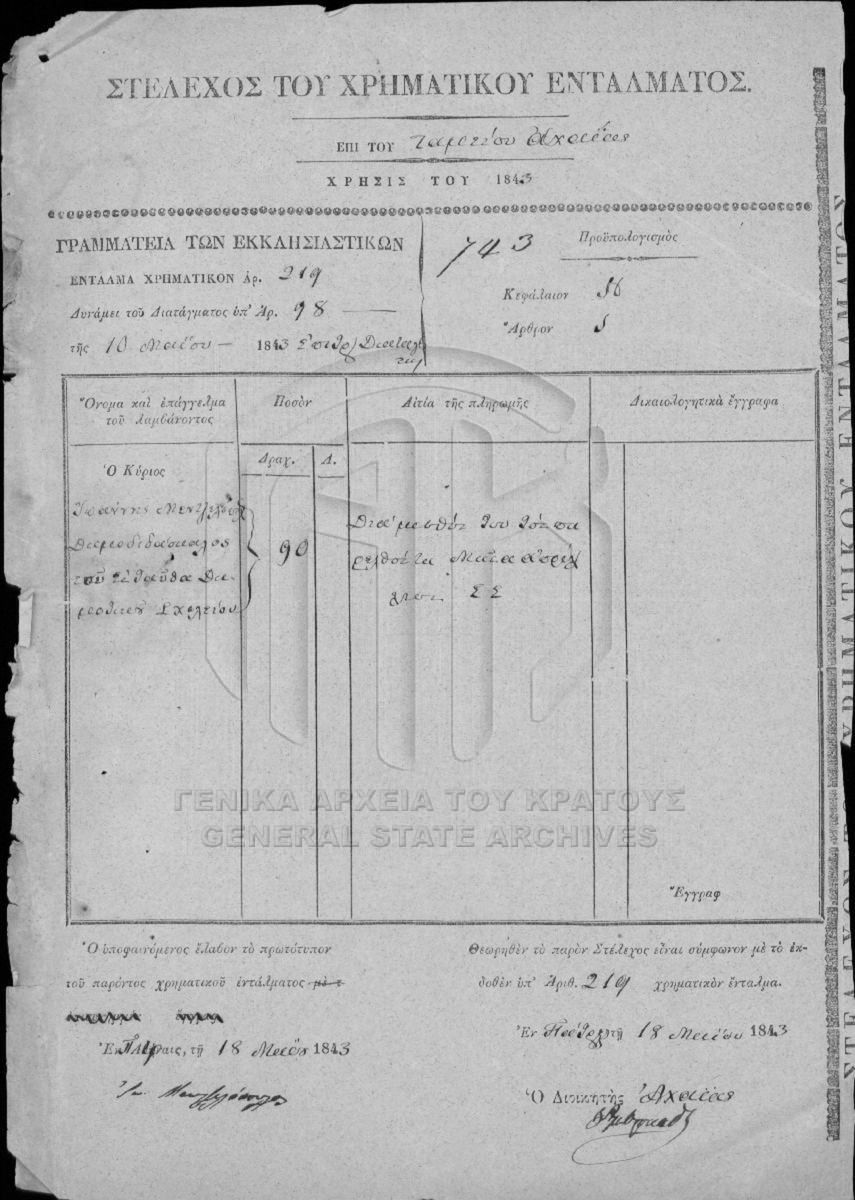 ΣΤΕΛΕΧΟΣ ΤΟΥ ΧΡΗΜΑΤΙΚΟΥ ΕΝΤΑΛΜΑΤΟΣ.
ΕΠΙ ΤΟΥ Ταμείου Ἀχαΐας
ΧΡΗΣΙΣ ΤΟΥ 1843
ΓΡΑΜΜΑΤΕΙΑ ΤΩΝ ΕΚΚΛΗΣΙΑΣΤΙΚΩΝ
ΕΝΤΑΛΜΑ ΧΡΗΜΑΤΙΚΟΝ Ἀρ. 219
Δυνάμει τοῦ Διατάγματος ὑπ' Ἀρ. 98
τῆς 10 Μαΐου 1843
743
Προϋπολογισμὸς
Κεφάλαιον
Ἄρθρον
Ὄνομα καὶ ἐπάγγελμα
τοῦ λαμβάνοντος
Ποσὸν
Αἰτία τῆς πληρωμῆς
Δικαιολογητικὰ ἔγγραφα
Δραχ. Λ.
Ὁ Κύριος
Ἰωάννης
Δημοδιδάσκαλος
τοῦ ἐνταῦθα
Σχολείου
90
Διὰ μισθόν του τὸν πα
ρελθόντα Μῆνα Ἀπρίλ
Ἔγγραφ
Ὁ ὑποφαινόμενος ἔλαβον τὸ πρωτότυπον
τοῦ παρόντος χρηματικοῦ ἐντάλματος
Ἐν Πάτραις, τῇ 18 Μαΐου 1843
Θεωρηθὲν τὸ παρὸν Στέλεχος εἶναι σύμφωνον μὲ τὸ ἐκ-
δοθὲν ὑπ' Ἀριθ. 219 χρηματικὸν ἔνταλμα.
Ἐν Πάτραις τῇ 18 Μαΐου 1843
Ὁ Διοικητὴς Ἀχαΐας
ΓΕΝΙΚΑ ΑΡΧΕΙΑ ΤΟΥ ΚΡΑΤΟΥΣ
GENERAL STATE ARCHIVES